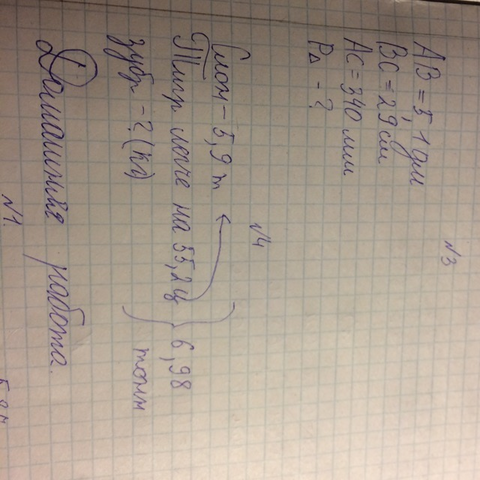 N3
AB = 5,1 дм
BC = 29 см
AC = 340 мм
P△ - ?
N4
Слон - 5,9 т
Тигр легче на 55,2 ц } 6,98 тонн
зубр - ? (кг)
Домашняя работа.
N1.